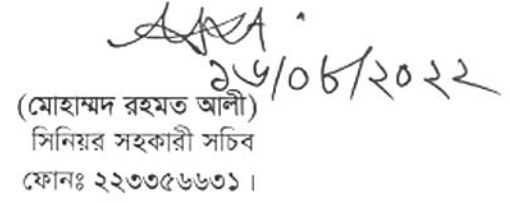 ১৬/০৮/২০২২
(মোহাম্মদ রহমত আলী)
সিনিয়র সহকারী সচিব
ফোনঃ ২২৩৩৫৬৬৩১ ।